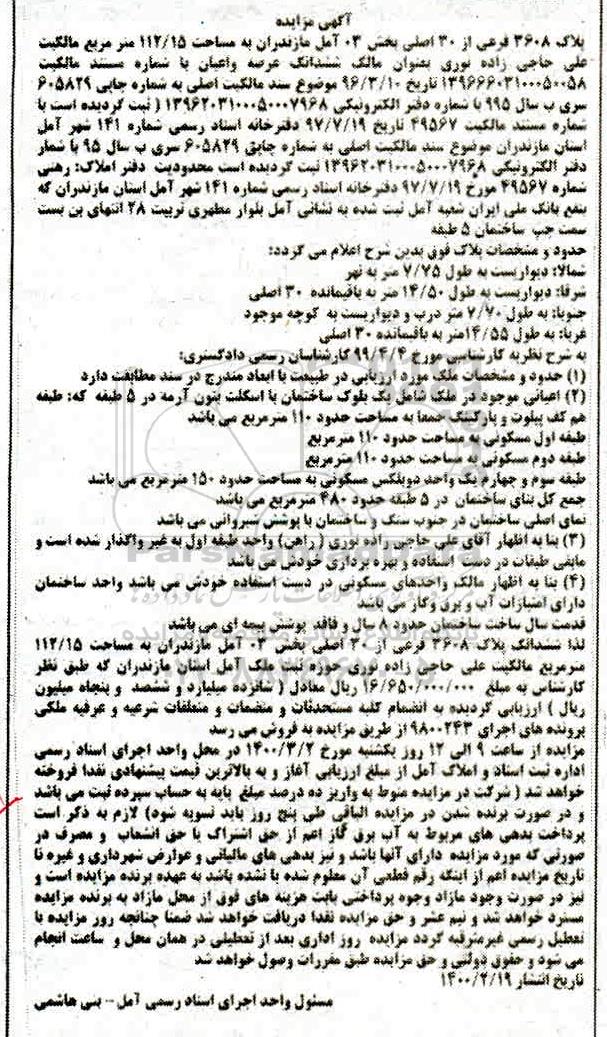 آگهی مزایده
پلاک ۳۶۰۸ فرعی از ۳۰ اصلی بخش ۰۳ آمل مازندران به مساحت ۱۱۲/۱۵ متر مربع مالکیت
علی حاجی زاده نوری بعنوان مالک ششدانگ عرصه واعیان با شماره مستند مالکیت
۱۳۹۶۶۶۰۳۱۰۰۰۵۰۰۵۸ تاریخ ۹۶/۳/۱۰ موضوع سند مالکیت اصلی به شماره چاپی ۶۰۵۸۲۹
سری ب سال ۹۹۵ با شماره دفتر الکترونیکی ۱۳۹۶۲۰۳۱۰۰۰۵۰۰۰۷۹۶۸ ( ثبت گردیده است با
شماره مستند مالکیت ۴۹۵۶۷ تاریخ ۹۷/۷/۱۹ دفترخانه اسناد رسمی شماره ۱۴۱ شهر آمل
استان مازندران موضوع سند مالکیت اصلی به شماره چاپی ۶۰۵۸۲۹ سری ب سال ۹۵ با شمار
دفتر الکترونیکی ۱۳۹۶۲۰۳۱۰۰۰۵۰۰۰۷۹۶۸ ثبت گردیده است محدودیت دفتر املاک: رهنی
شماره ۴۹۵۶۷ مورخ ۹۷/۷/۱۹ دفترخانه اسناد رسمی شماره ۱۴۱ شهر آمل استان مازندران که
بنفع بانک ملی ایران شعبه آمل ثبت شده به نشانی آمل بلوار مطهری تربیت ۲۸ انتهای بن بست
سمت چپ ساختمان ۵ طبقه
حدود و مشخصات پلاک فوق بدین شرح اعلام می گردد:
شمالا: دیواریست به طول ۷/۷۵ متر به نهر
شرقا: دیواریست به طول ۱۴/۵۰ متر به باقیمانده ۳۰ اصلی
جنوبا: به طول ۷/۷۰ متر درب و دیواریست به کوچه موجود
غربا: به طول ۱۴/۵۵متر به باقیمانده ۳۰ اصلی
به شرح نظریه کارشناسی مورخ ۹۹/۴/۴ کارشناسان رسمی دادگستری:
(۱) حدود و مشخصات ملک مورد ارزیابی در طبیعت با ابعاد مندرج در سند مطابقت دارد
(۲) اعیانی موجود در ملک شامل یک بلوک ساختمان با اسکلت بتون آرمه در ۵ طبقه که: طبقه
هم کف پیلوت و پارکینگ جمعا به مساحت حدود ۱۱۰ مترمربع می باشد
طبقه اول مسکونی به مساحت حدود ۱۱۰ مترمربع
طبقه دوم مسکونی به مساحت حدود ۱۱۰ مترمربع
طبقه سوم و چهارم یک واحد دوبلکس مسکونی به مساحت حدود ۱۵۰ مترمربع می باشد
جمع کل بنای ساختمان در ۵ طبقه حدود ۴۸۰ مترمربع می باشد
نمای اصلی ساختمان در جنوب سنگ و ساختمان با پوشش شیروانی می باشد
(۳) بنا به اظهار آقای علی حاجی زاده نوری ( راهن) واحد طبقه اول به غیر واگذار شده است و
مابقی طبقات در دست استفاده و بهره برداری خودش می باشد
(۴) بنا به اظهار مالک واحدهای مسکونی در دست استفاده خودش می باشد واحد ساختمان
دارای امتیازات آب و برق وگاز می باشد
قدمت سال ساخت ساختمان حدود ۸ سال و فاقد پوشش بیمه ای می باشد
لذا ششدانگ پلاک ۳۶۰۸ فرعی از ۳۰ اصلی بخش ۰۳ آمل مازندران به مساحت ۱۱۲/۱۵
مترمربع مالکیت علی حاجی زاده نوری حوزه ثبت ملک آمل استان مازندران که طبق نظر
کارشناس به مبلغ ۱۶/۶۵۰/۰۰۰/۰۰۰ ریال معادل ( شانزده میلیارد و ششصد و پنجاه میلیون
ریال ) ارزیابی گردیده به انضمام کلیه مستحدثات و منضمات و متعلقات شرعیه و عرفیه ملکی
پرونده های اجرای ۹۸۰۰۲۴۳ از طریق مزایده به فروش می رسد
مزایده از ساعت ۹ الی ۱۲ روز یکشنبه مورخ ۱۴۰۰/۳/۲ در محل واحد اجرای اسناد رسمی
اداره ثبت اسناد و املاک آمل از مبلغ ارزیابی آغاز و به بالاترین قیمت پیشنهادی نقدا فروخته
خواهد شد ( شرکت در مزایده منوط به واریز ده درصد مبلغ پایه به حساب سپرده ثبت می باشد
و در صورت برنده شدن در مزایده الباقی طی پنج روز باید تسویه شود) لازم به ذکر است
پرداخت بدهی های مربوط به آب برق گاز اعم از حق اشتراک یا حق انشعاب و مصرف در
صورتی که مورد مزایده دارای آنها باشد و نیز بدهی های مالیاتی و عوارض شهرداری و غیره تا
تاریخ مزایده اعم از اینکه رقم قطعی آن معلوم شده یا نشده باشد به عهده برنده مزایده است و
نیز در صورت وجود مازاد وجوه پرداختی بابت هزینه های فوق از محل مازاد به برنده مزایده
مسترد خواهد شد و نیم عشر و حق مزایده نقدا دریافت خواهد شد ضمنا چنانچه روز مزایده با
تعطیل رسمی غیرمترقبه گردد مزایده روز اداری بعد از تعطیلی در همان محل و ساعت انجام
می شود و حقوق دولتی و حق مزایده طبق مقررات وصول خواهد شد
تاریخ انتشار ۱۴۰۰/۲/۱۹
مسئول واحد اجرای اسناد رسمی آمل- بنی هاشمی